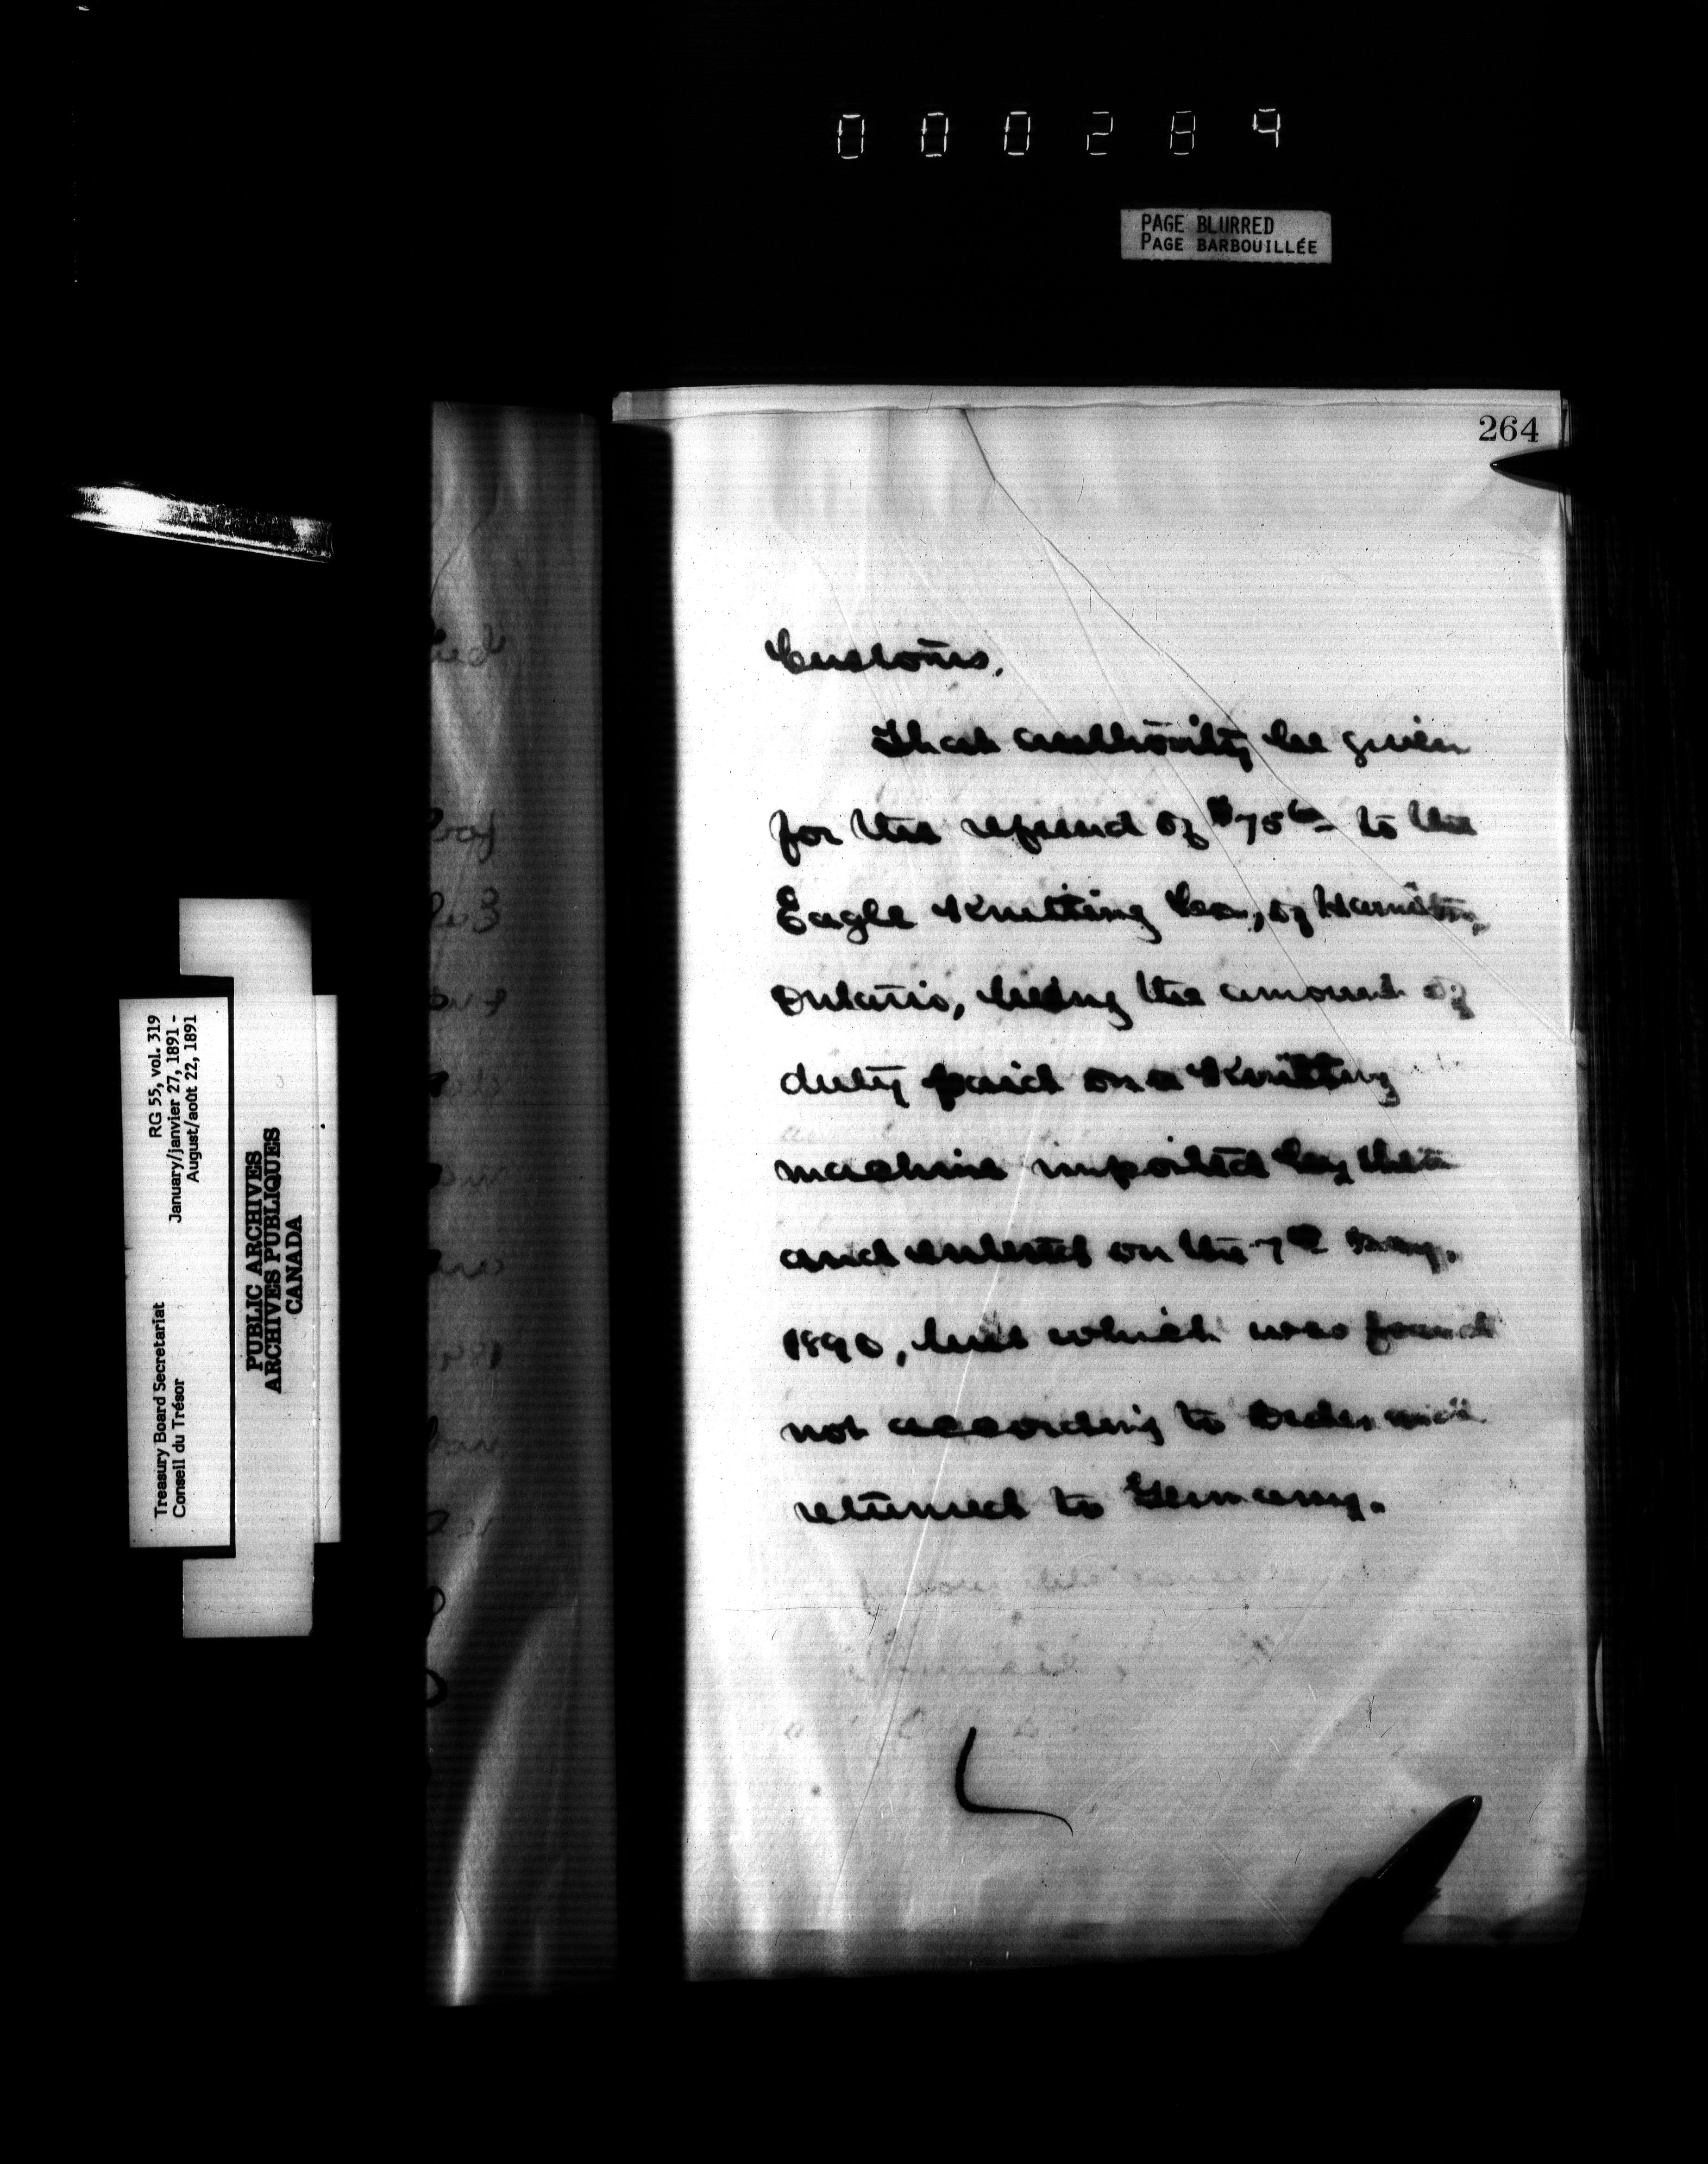 000289
PAGE BLURRED
PAGE BARBOUILLÉE
264
Customs.
That authority be given
for the refund of $75 00 to the
Eagle Knitting Co., of Hamilton,
Ontario, being the amount of
duty paid on a Knitting
machine imported by them
and entered on the 7th May,
1890, but which was found
not according to order and
returned to Germany.
RG 55, vol. 319
January/janvier 27, 1891 -
August/août 22, 1891
Treasury Board Secretariat
Conseil du Trésor
PUBLIC ARCHIVES
ARCHIVES PUBLIQUES
CANADA